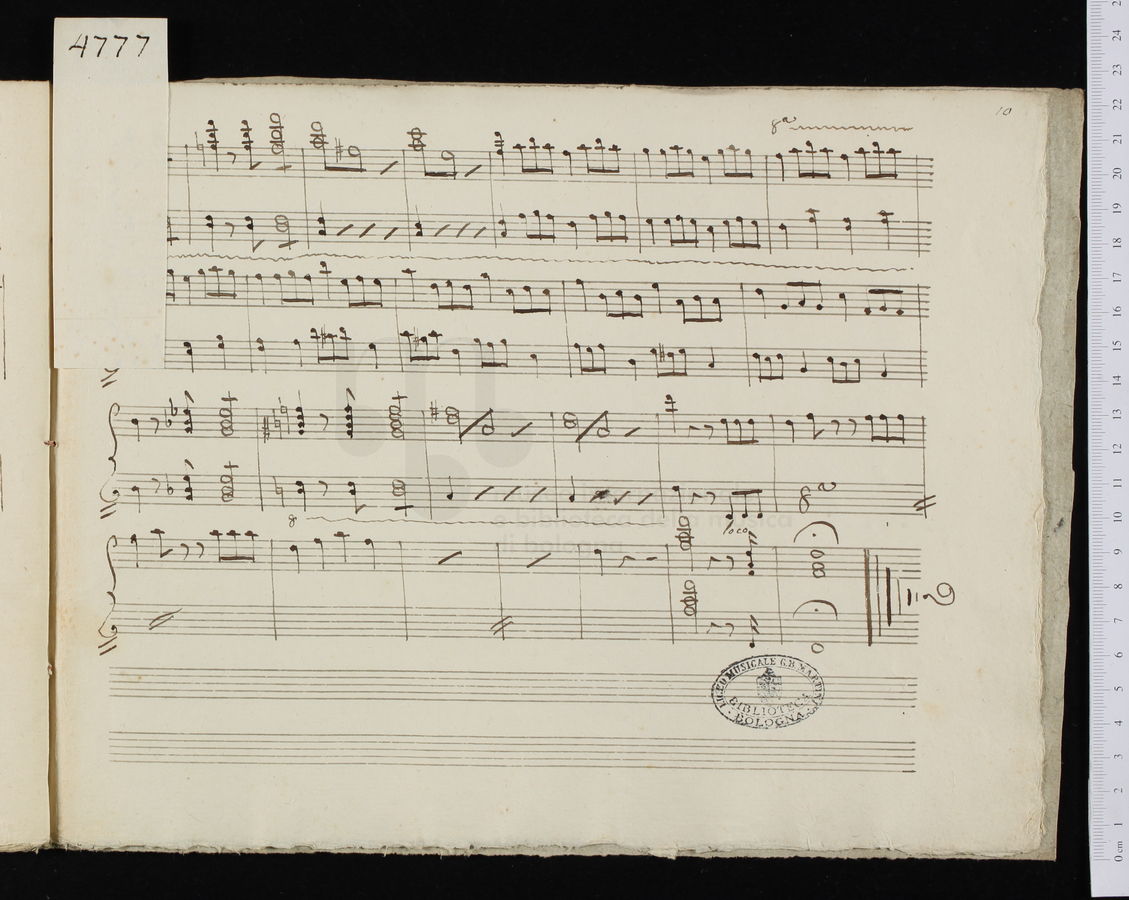 4777
10
8ª
8
8ª
loco
e biblioteca della musica
di bologna
LICEO MUSICALE G.B. MARTINI
BIBLIOTECA
BOLOGNA
0 cm 1 2 3 4 5 6 7 8 9 10 11 12 13 14 15 16 17 18 19 20 21 22 23 24